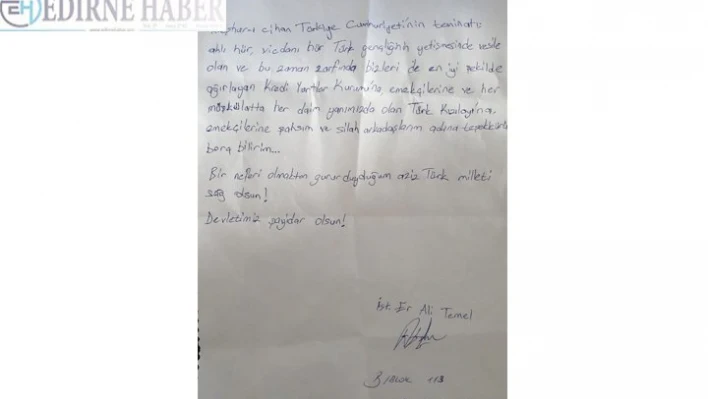 EH EDİRNE HABER
cihan Türkiye Cumhuriyeti'nin teminatı
aklı hür, vicdanı hür Türk gençliğin yetişmesinde vesile
olan ve bu zaman zarfında bizleri de en iyi şekilde
ağırlayan Kredi Yurtlar Kurumuna, emekçilerine ve her
müşkülatta her daim yanımızda olan Türk Kızılayı'na,
emekçilerine şahsım ve silah arkadaşlarım adına teşekkürü
borç bilirim.
Bir neferi olmaktan gurur duyduğum aziz Türk milleti
sağ olsun!
Devletimiz payidar olsun!
Er Ali Temel